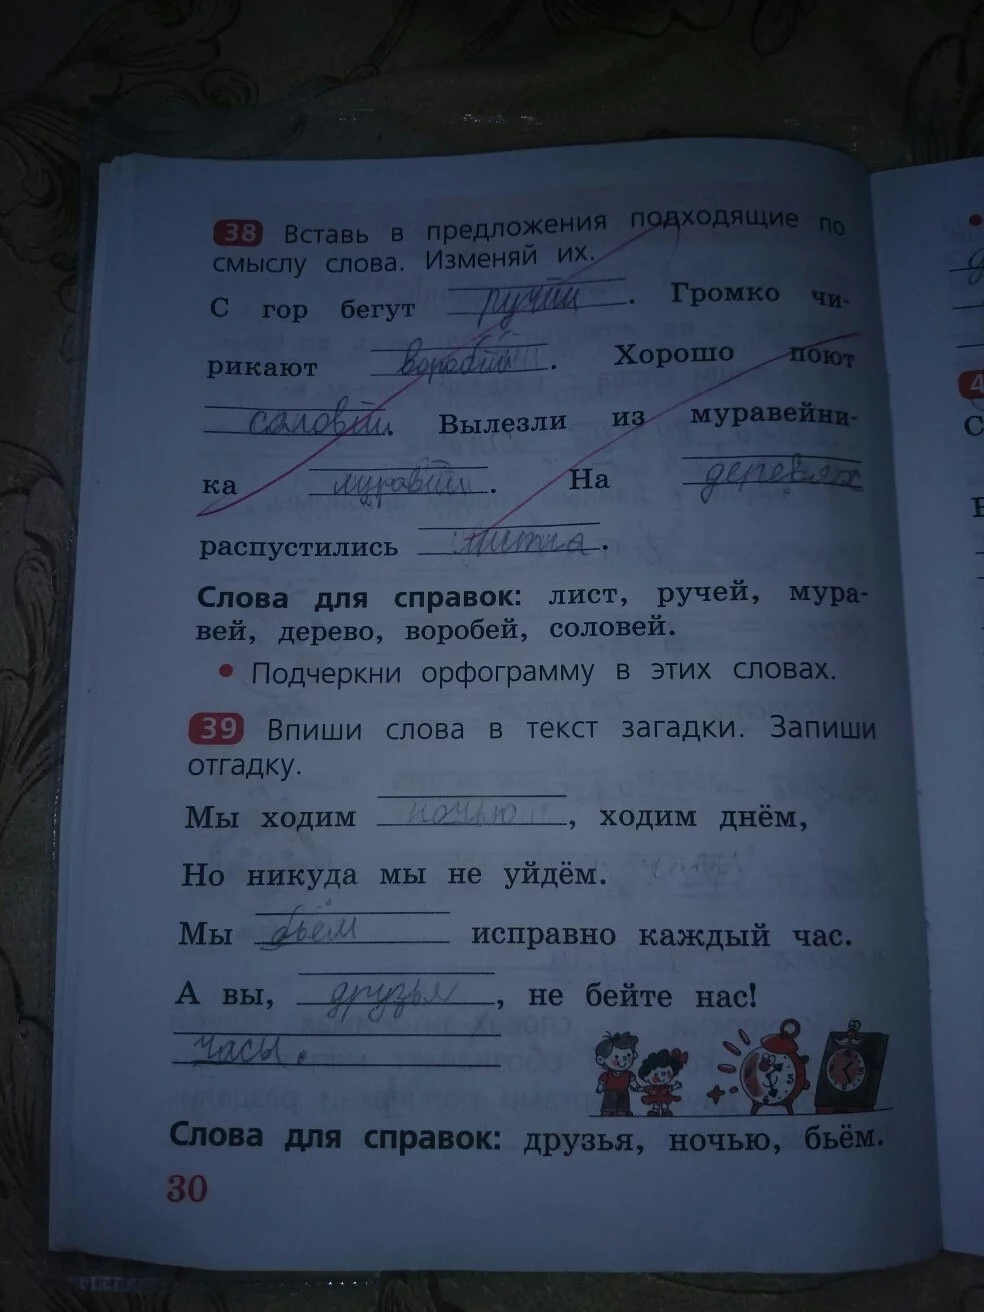 38 Вставь в предложения подходящие по
смыслу слова. Изменяй их.
С гор бегут ручьи. Громко чи-
рикают воробьи. Хорошо поют
соловьи. Вылезли из муравейни-
ка муравьи. На деревях
распустились
Слова для справок: лист, ручей, мура-
вей, дерево, воробей, соловей.
• Подчеркни орфограмму в этих словах.
39 Впиши слова в текст загадки. Запиши
отгадку.
Мы ходим ночью, ходим днём,
Но никуда мы не уйдём.
Мы бьём исправно каждый час.
А вы, друзья, не бейте нас!
часы.
Слова для справок: друзья, ночью, бьём.
30